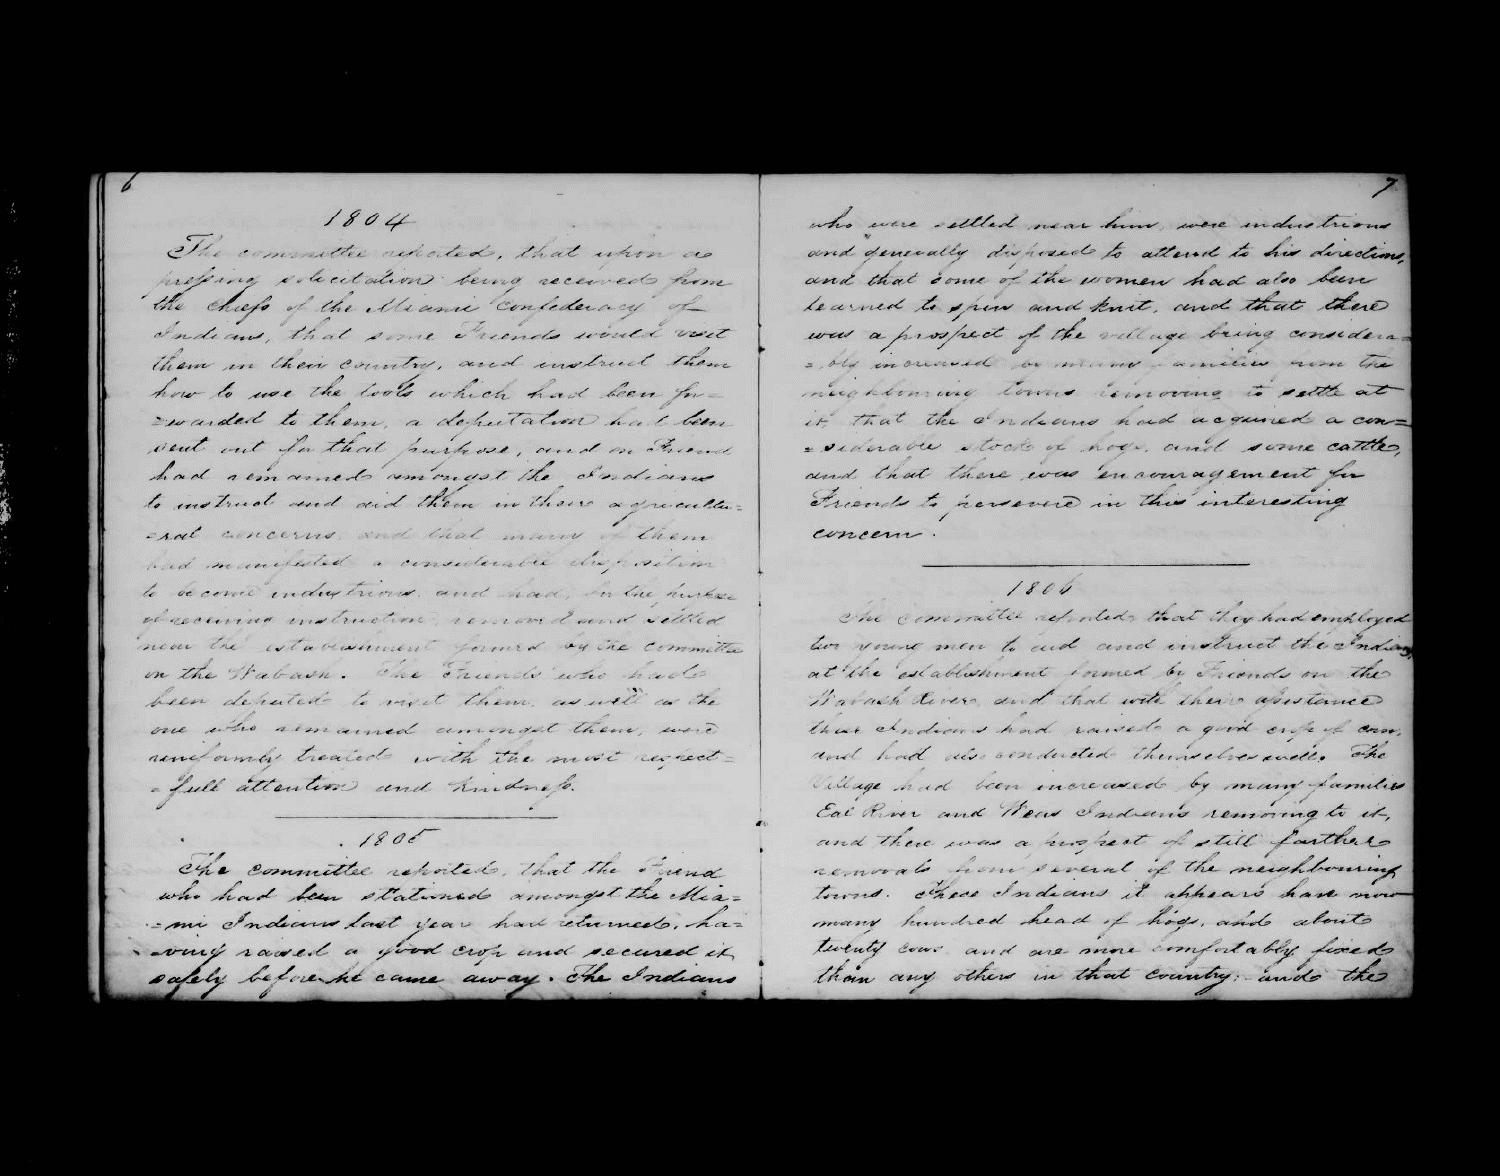 6
1804
The committee reported, that upon a
pressing solicitation being received from
the Chiefs of the Miami Confederacy of
Indians, that some Friends would visit
them in their country, and instruct them
how to use the tools which had been for=
=warded to them, a deputation had been
sent out for that purpose, and on Friend
had remained amongst the Indians
to instruct and aid them in their agricultu=
=ral concerns, and that many of them
had manifested a considerable disposition
to become industrious, and had, for the purpose
of receiving instruction, removed and settled
near the establishment formed by the committee
on the Wabash. The Friends who had
been deputed to visit them, as well as the
one who remained amongst them, were
uniformly treated with the most respect=
=full attention and kindness.
1805
The committee reported, that the Friend
who had been stationed amongst the Mia=
=mi Indians last year had returned, ha=
=ving raised a good crop and secured it
safely before he came away. The Indians
7
who were settled near him, were industrious
and generally disposed to attend to his directions,
and that some of the women had also been
learned to spin and knit, and that there
was a prospect of the village being considera=
=bly increased by many families from the
neighbouring towns removing to settle at
it, that the Indians had acquired a con=
=siderable stock of hogs, and some cattle,
and that there was encouragement for
Friends to persevere in this interesting
concern.
1806
The committee reported that they had employed
two young men to aid and instruct the Indians,
at the establishment formed by Friends on the
Wabash River, and that with their assistance
these Indians had raised a good crop of corn,
and had also conducted themselves well. The
Village had been increased by many families
Eal River and Weas Indians removing to it,
and there was a prospect of still farther
removals from several of the neighbouring
towns. These Indians it appears have now
many hundred head of hogs, and about
twenty cows and are more comfortably fixed
than any others in that country; and the